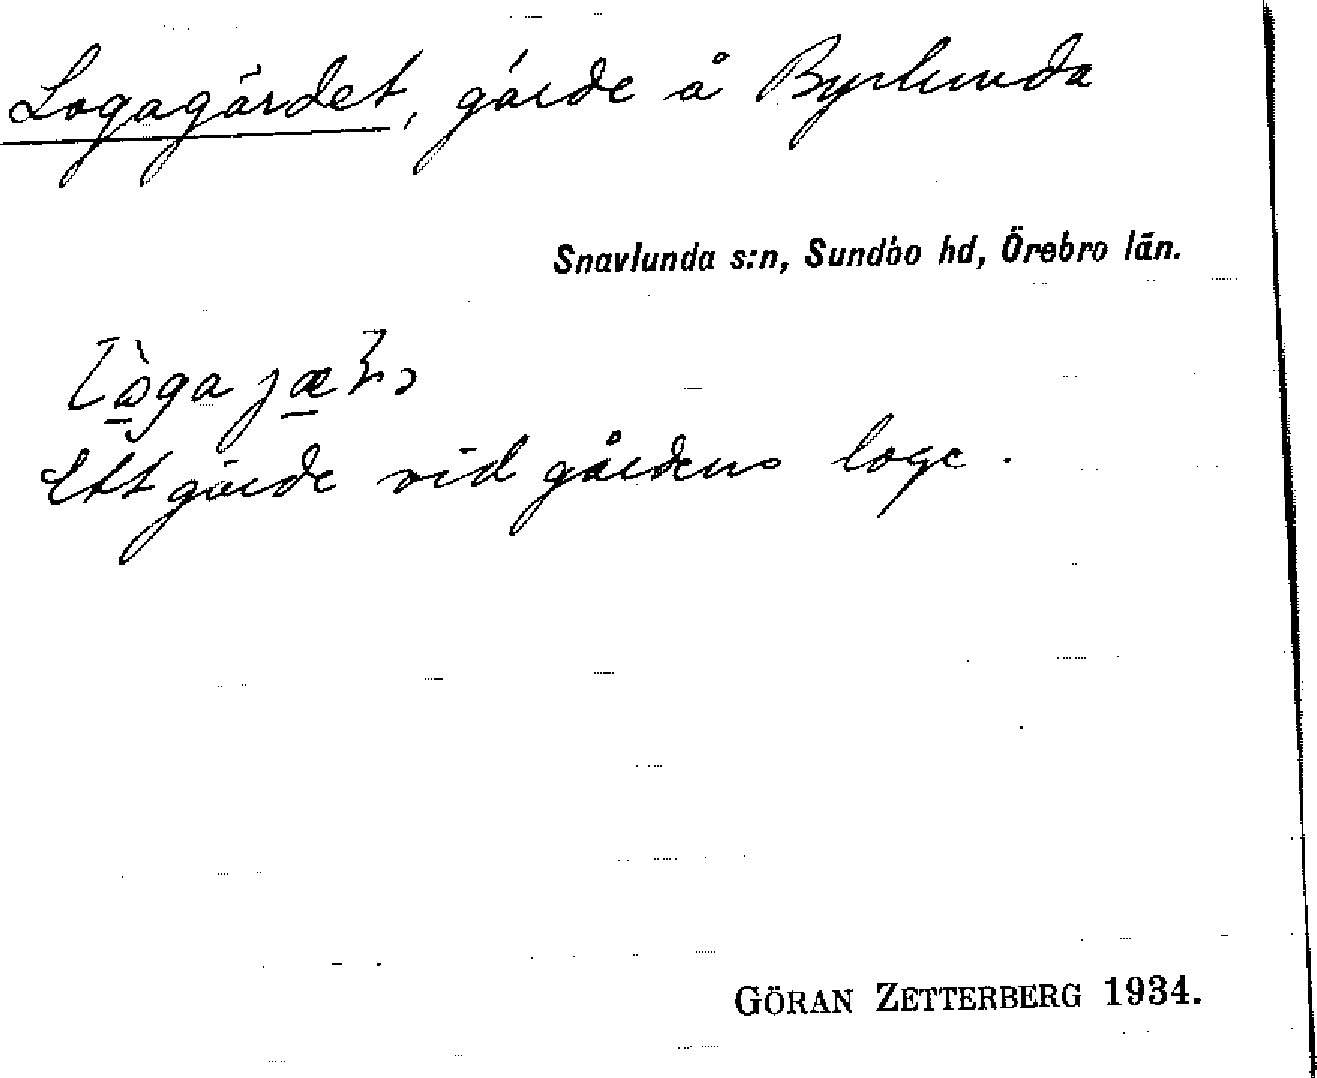 Logagärdet, gärde å Byrlunda
Snavlunda s:n, Sundbo hd, Örebro län.
Ett gärde vid gårdens loge.
GÖRAN ZETTERBERG 1934.